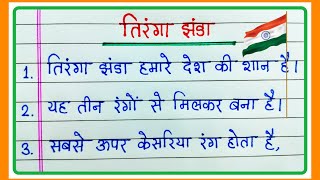 तिरंगा झंडा
1. तिरंगा झंडा हमारे देश की शान है।
2. यह तीन रंगों से मिलकर बना है।
3. सबसे ऊपर केसरिया रंग होता है,